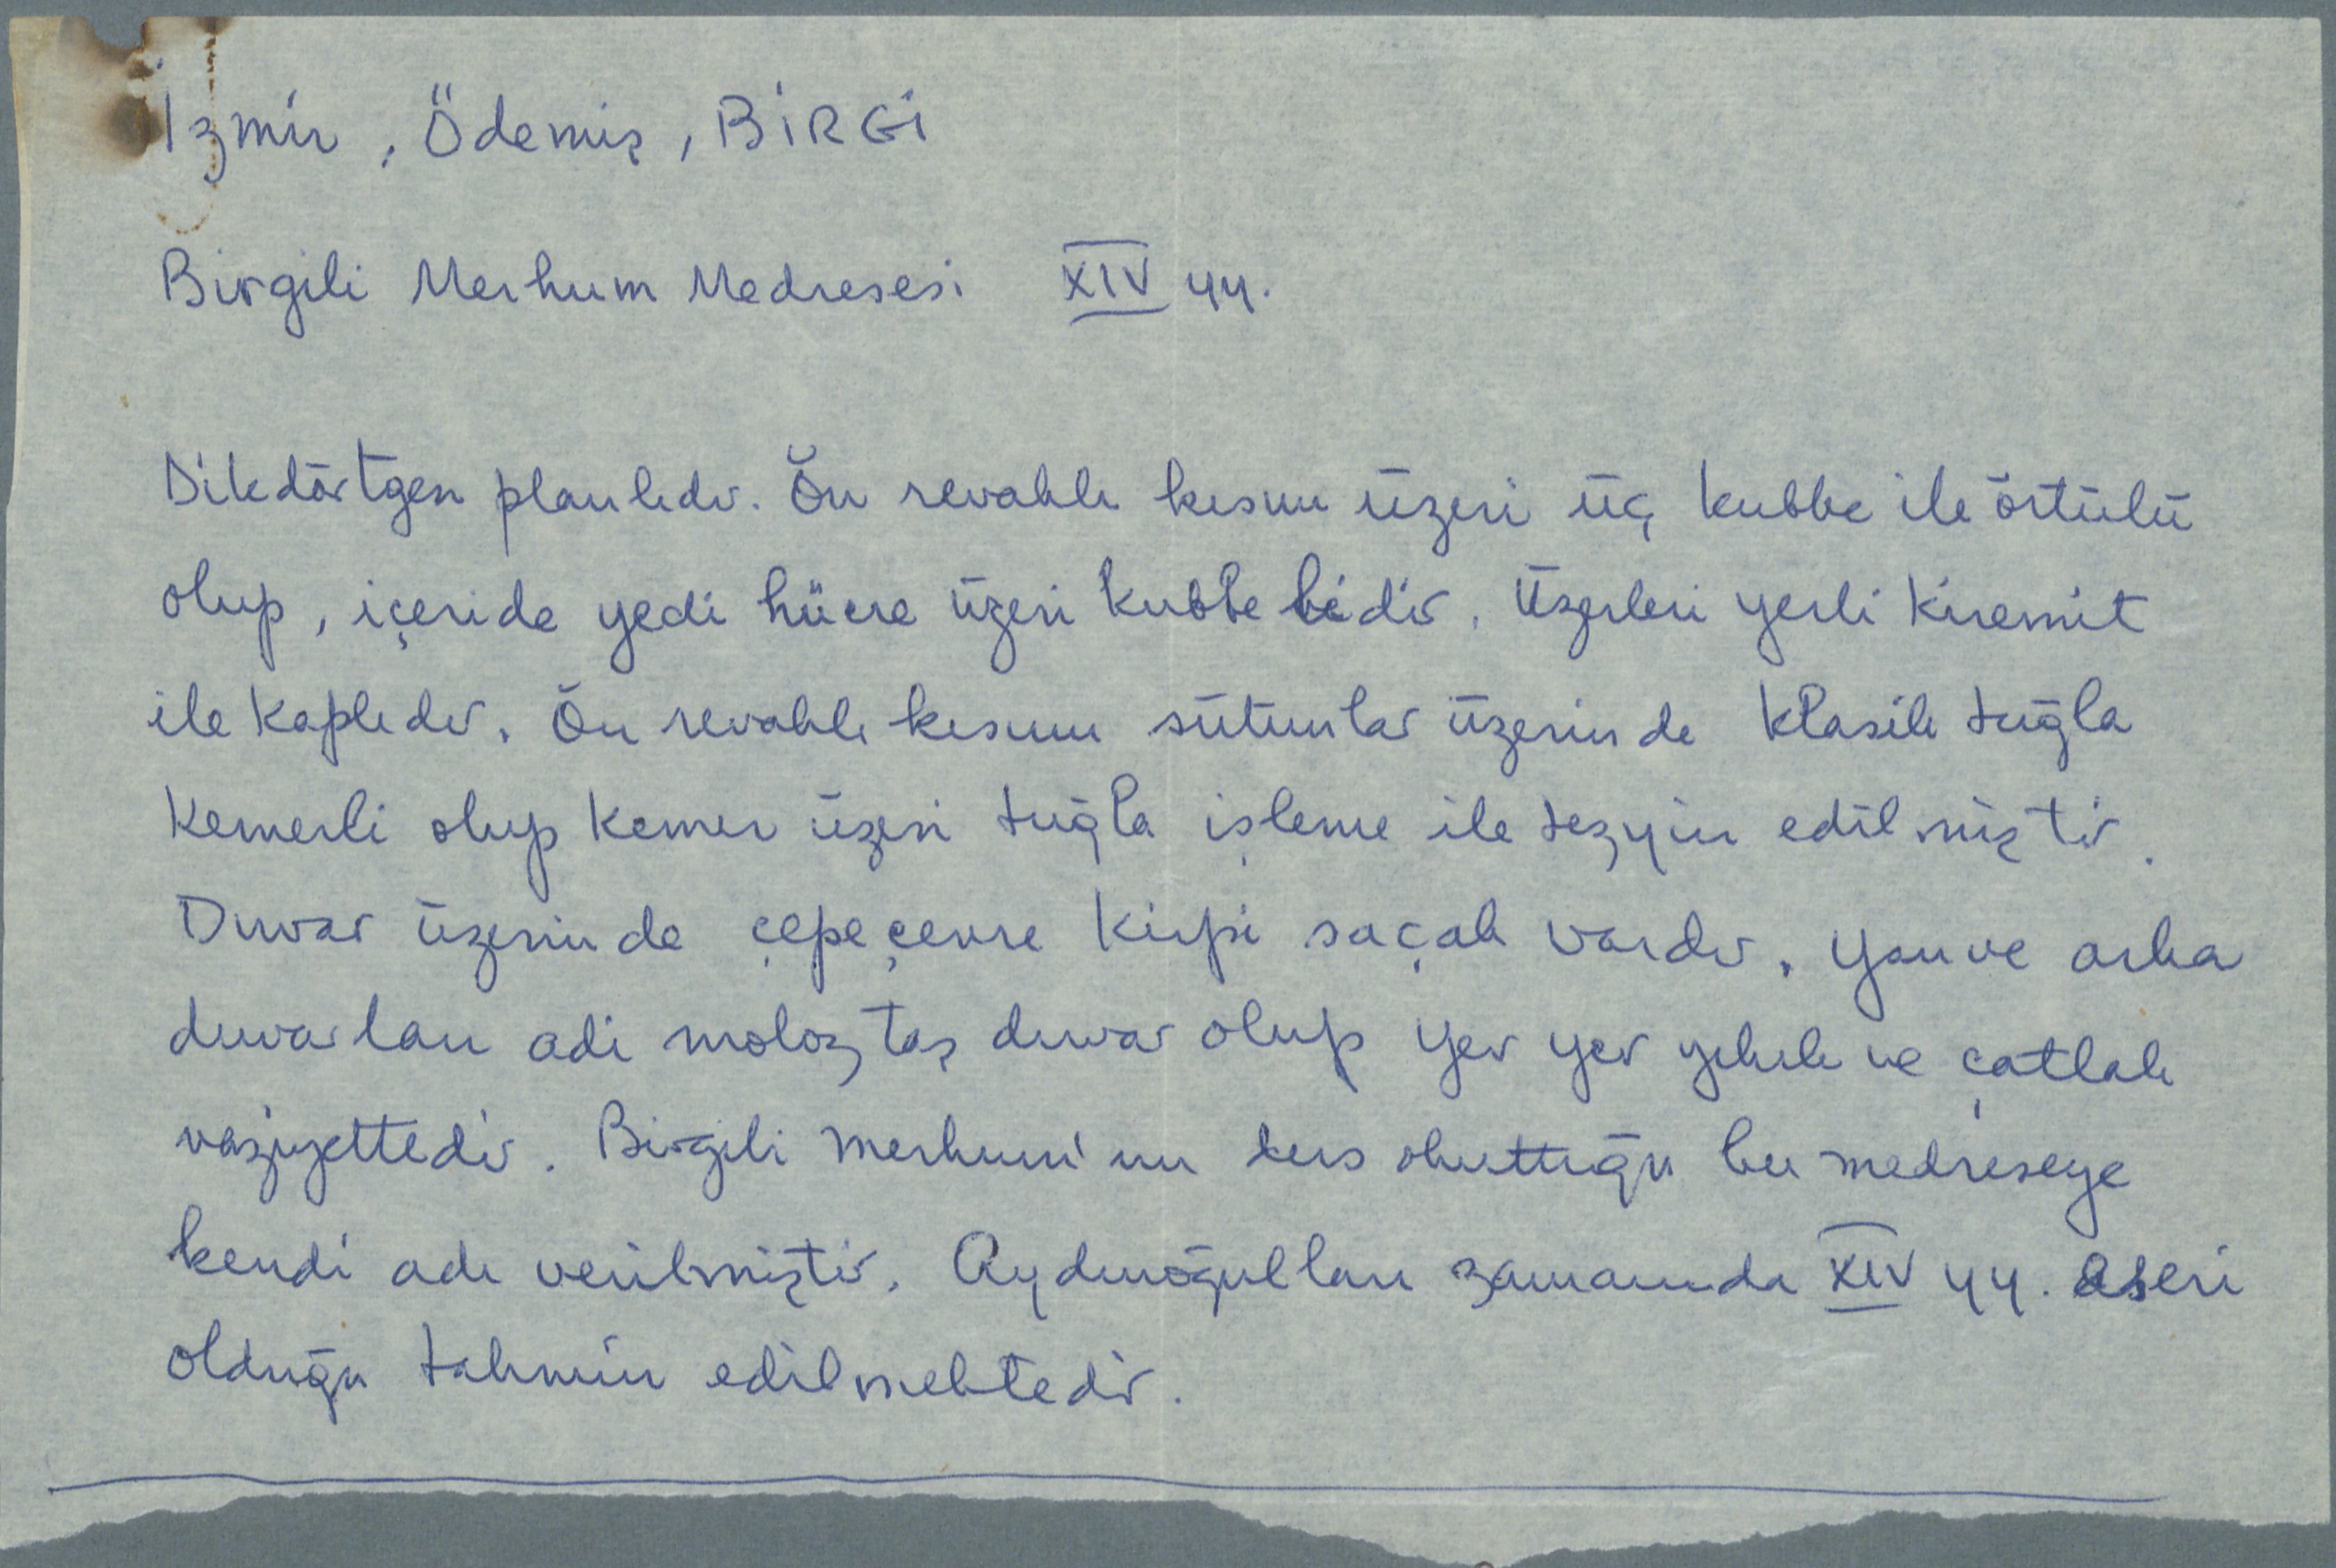 İzmir, Ödemiş, BİRGİ
Birgili Merhum Medresesi XIV yy.
Dikdörtgen planlıdır. Ön revaklı kısmı üzeri üç kubbe ile örtülü
olup, içeride yedi hücre üzeri kubbelidir. Üzerleri yerli kiremit
ile kaplıdır. Ön revaklı kısmı sütunlar üzerinde klasik tuğla
kemerli olup kemer üzeri tuğla işleme ile tezyin edilmiştir.
Duvar üzerinde çepeçevre kirpi saçak vardır. Yan ve arka
duvarları adi moloz taş duvar olup yer yer yıkık ve çatlak
vaziyettedir. Birgili Merhum'un ders okuttuğu bu medreseye
kendi adı verilmiştir. Aydınoğulları zamanında XIV yy. eseri
olduğu tahmin edilmektedir.